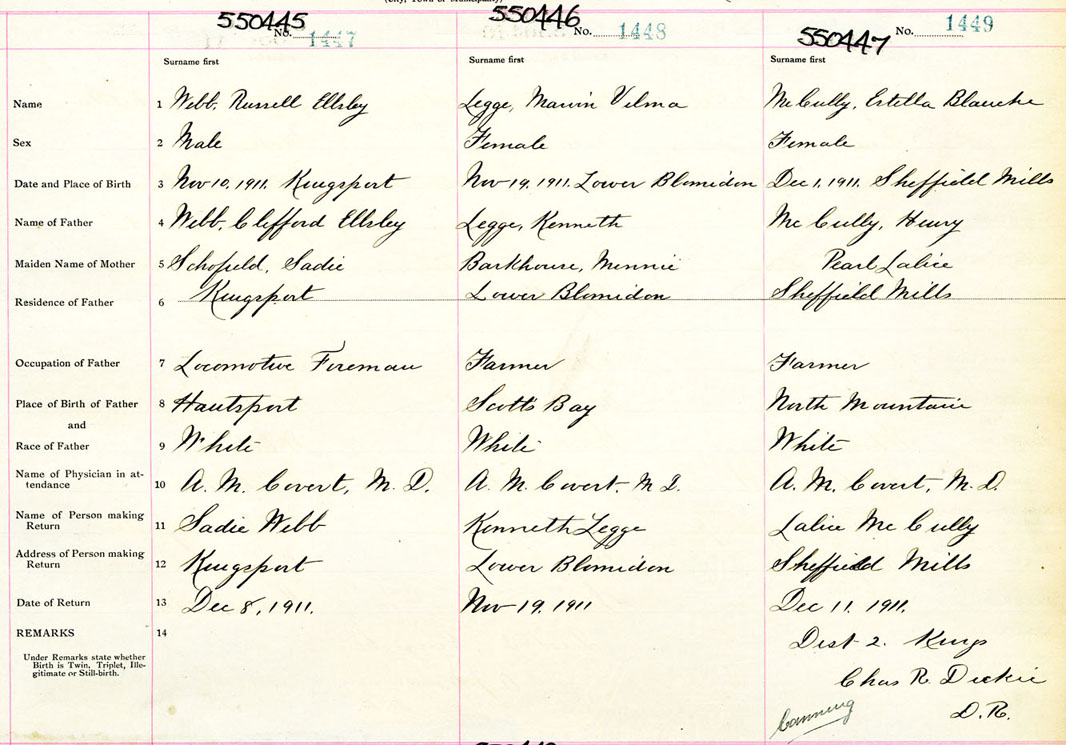 (City, Town or Municipality)
550445 No. 1447 550446 No. 1448 550447 No. 1449
Surname first Surname first Surname first
Name 1 Webb, Russell Ellsley Legge, Marvin Velma McCully, Estella Blanche
Sex 2 Male Female Female
Date and Place of Birth 3 Nov 10, 1911. Kingsport Nov 19, 1911. Lower Blomidon Dec 1, 1911. Sheffield Mills
Name of Father 4 Webb, Clifford Ellsley Legge, Kenneth McCully, Henry
Maiden Name of Mother 5 Schofield, Sadie Barkhouse, Minnie Pearl Lalice
Residence of Father 6 Kingsport Lower Blomidon Sheffield Mills
Occupation of Father 7 Locomotive Foreman Farmer Farmer
Place of Birth of Father 8 Hantsport Scotts Bay North Mountain
and
Race of Father 9 White White White
Name of Physician in at-
tendance 10 A. M. Covert, M. D. A. M. Covert. M D. A. M. Covert, M. D.
Name of Person making
Return 11 Sadie Webb Kenneth Legge Lalice McCully
Address of Person making
Return 12 Kingsport Lower Blomidon Sheffield Mills
Date of Return 13 Dec 8, 1911. Nov 19. 1911 Dec 11. 1911.
REMARKS 14 Dist 2. Kings
Under Remarks state whether
Birth is Twin, Triplet, Ille-
gitimate or Still-birth.
Chas R. Dickie
Canning D. R.